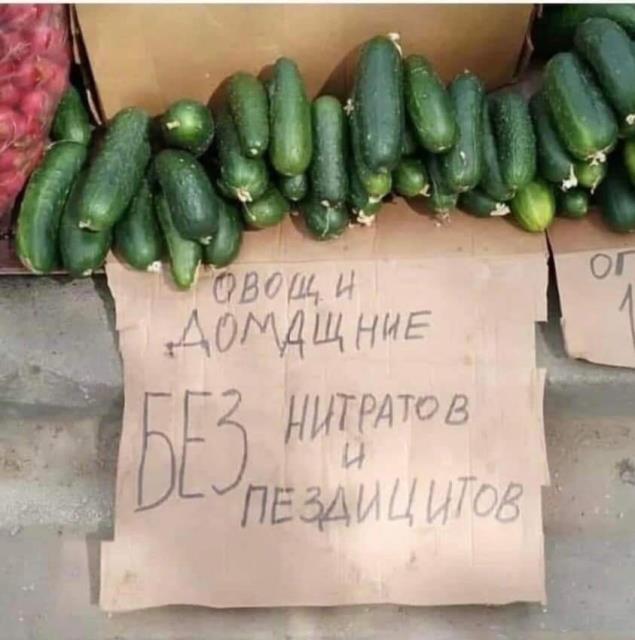 ОВОЩИ
ДОМАЩНИЕ
БЕЗ НИТРАТОВ
И
ПЕЗДИЦИТОВ
ОГ
1